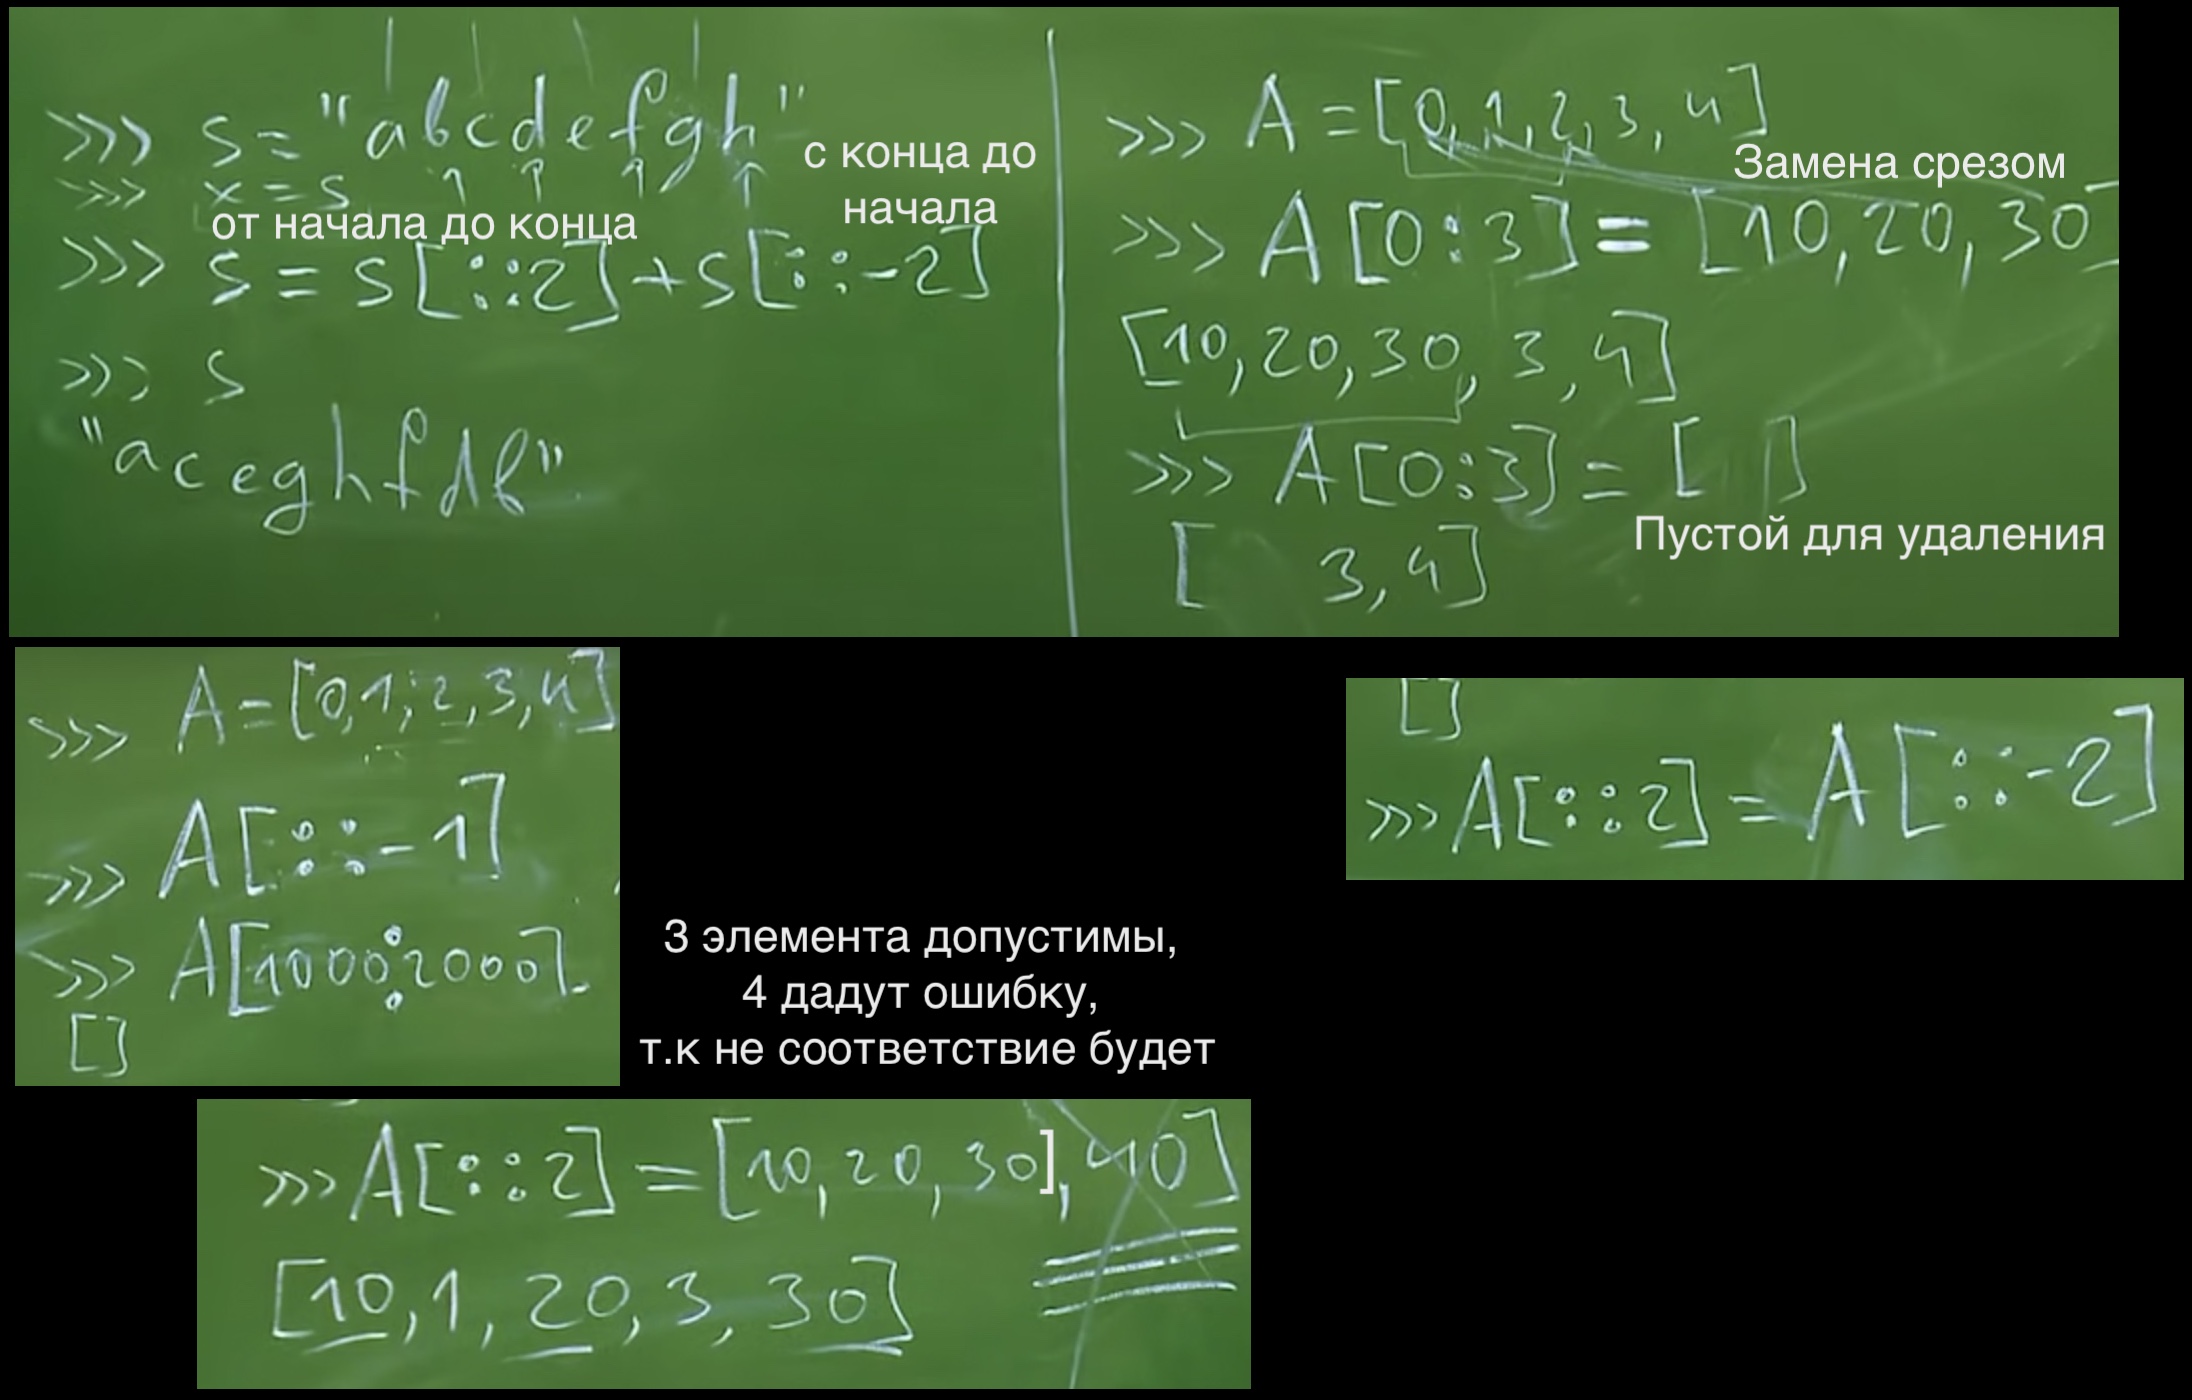 >>> s = "abcdefgh"
с конца до
начала
>>> x = s
от начала до конца
>>> s = s[::2]+s[::-2]
>>> s
"aceghfdb"
>>> A = [0,1,2,3,4]
Замена срезом
>>> A[0:3] = [10,20,30]
[10,20,30,3,4]
>>> A[0:3] = [ ]
Пустой для удаления
[ 3,4]
>>> A=[0,1,2,3,4]
>>> A[::-1]
>>> A[1000:2000]
[]
[]
>>> A[::2] = A[::-2]
3 элемента допустимы,
4 дадут ошибку,
т.к не соответствие будет
>>> A[::2] = [10,20,30],40]
[10,1,20,3,30]